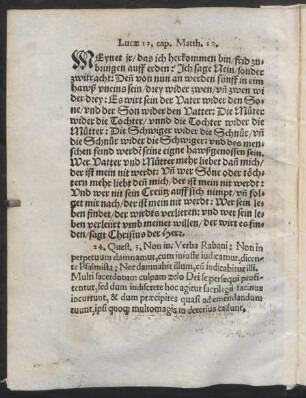 Lucæ 12. cap. Matth. 10.
MEynet jr/das ich herkommen bin/frid zu-
bringen auff erden? Ich sage Nein/sonder
zwitracht: Deñ von nun an werden fünff in eim
hawß vneins sein/drey wider zwen/vñ zwen wi
der drey: Es wirt sein der Vater wider den So-
ne/vnd der Son wider den Vatter: Die Můter
wider die Tochter/vnnd die Tochter wider die
Můtter: Die Schwiger wider die Schnůr/vñ
die Schnůr wider die Schwiger: vnd des men-
schen feind werdẽ seine eigne haußgenossen sein.
Wer Vatter vnd Můtter mehr liebet dañ mich/
der ist mein nit werdt: Vñ wer Söne oder töch-
tern mehr liebt deñ mich/der ist mein nit werdt:
Vnd wer nit sein Creütz auff sich nimpt/vñ fol-
get mir nach/der ist mein nit werdt: Wer sein le-
ben findet/der wirdts verlieren: vnd wer sein le-
ben verleürt vmb meinet willen/der wirt es fin-
den/sagt Christus der Herr.
24. Quest. 3, Non in. Verba Rabani; Non in
perpetuum damnamur, cum iniuste iudicamur, dicen-
te Psalmista; Nec damnabit illum, cũ iudicabitur illi.
Multi sacerdotum culpam zelo Dei se persequi profi-
tentur, sed dum indiscrete hoc agitur sacrilegij facinus
incurrunt, & dum præcipites quasi ad emendandum
ruunt, ipsi quoq; multomagis in deterius cadunt.